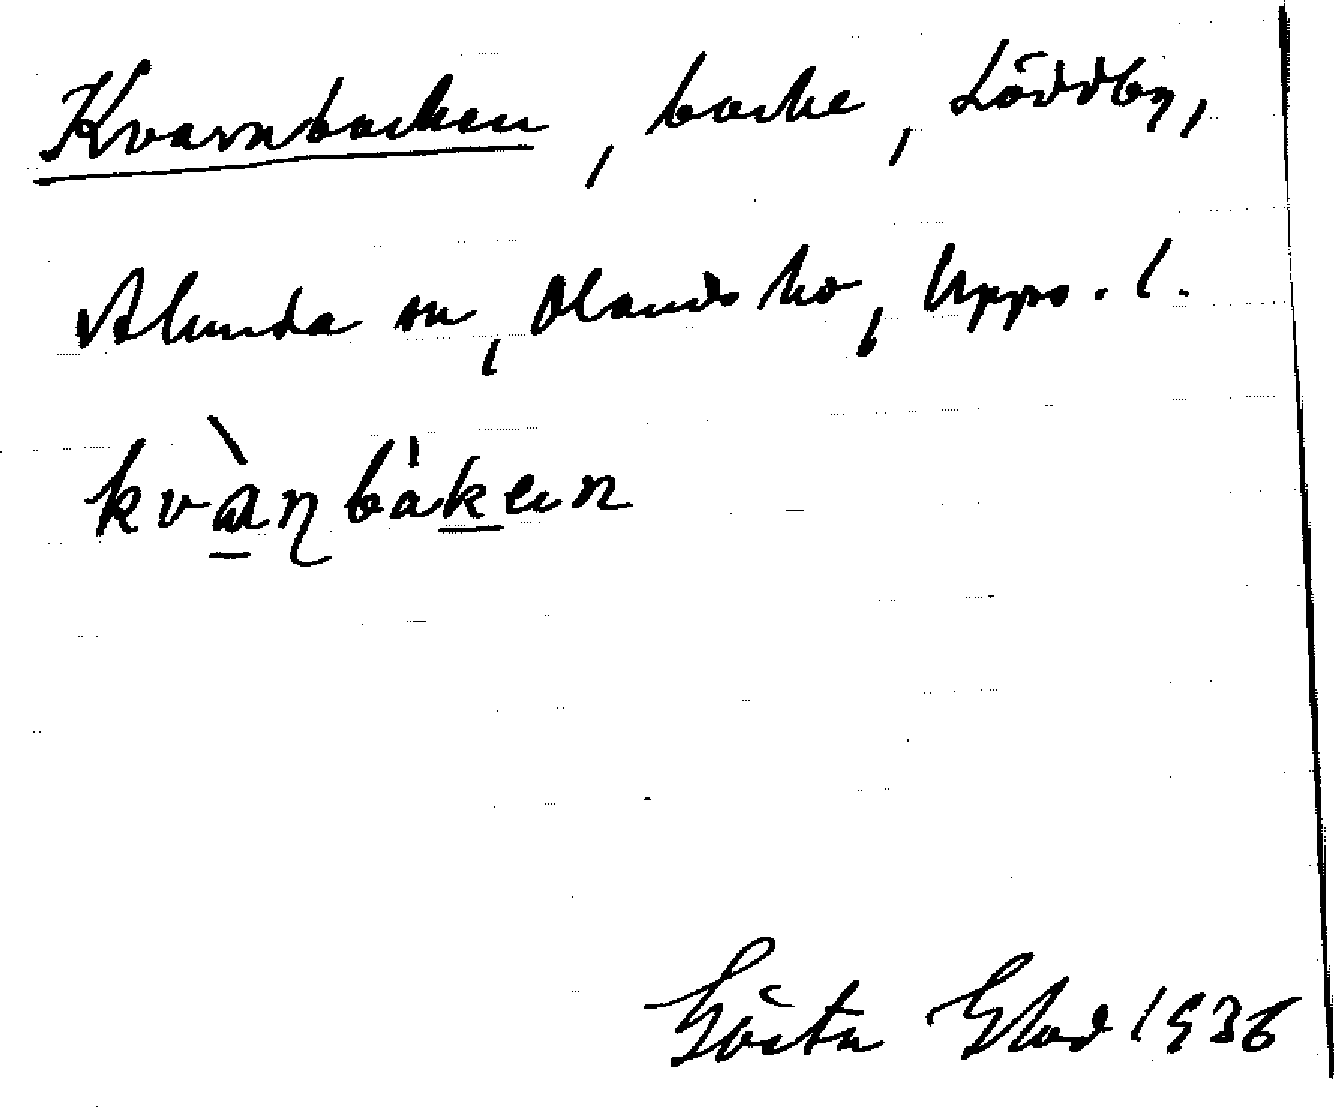 Kvarnbacken, backe, Löddby,
Alunda sn, Olands hd, Upps. l.
kvàn̨bàken
Gösta Elod 1936